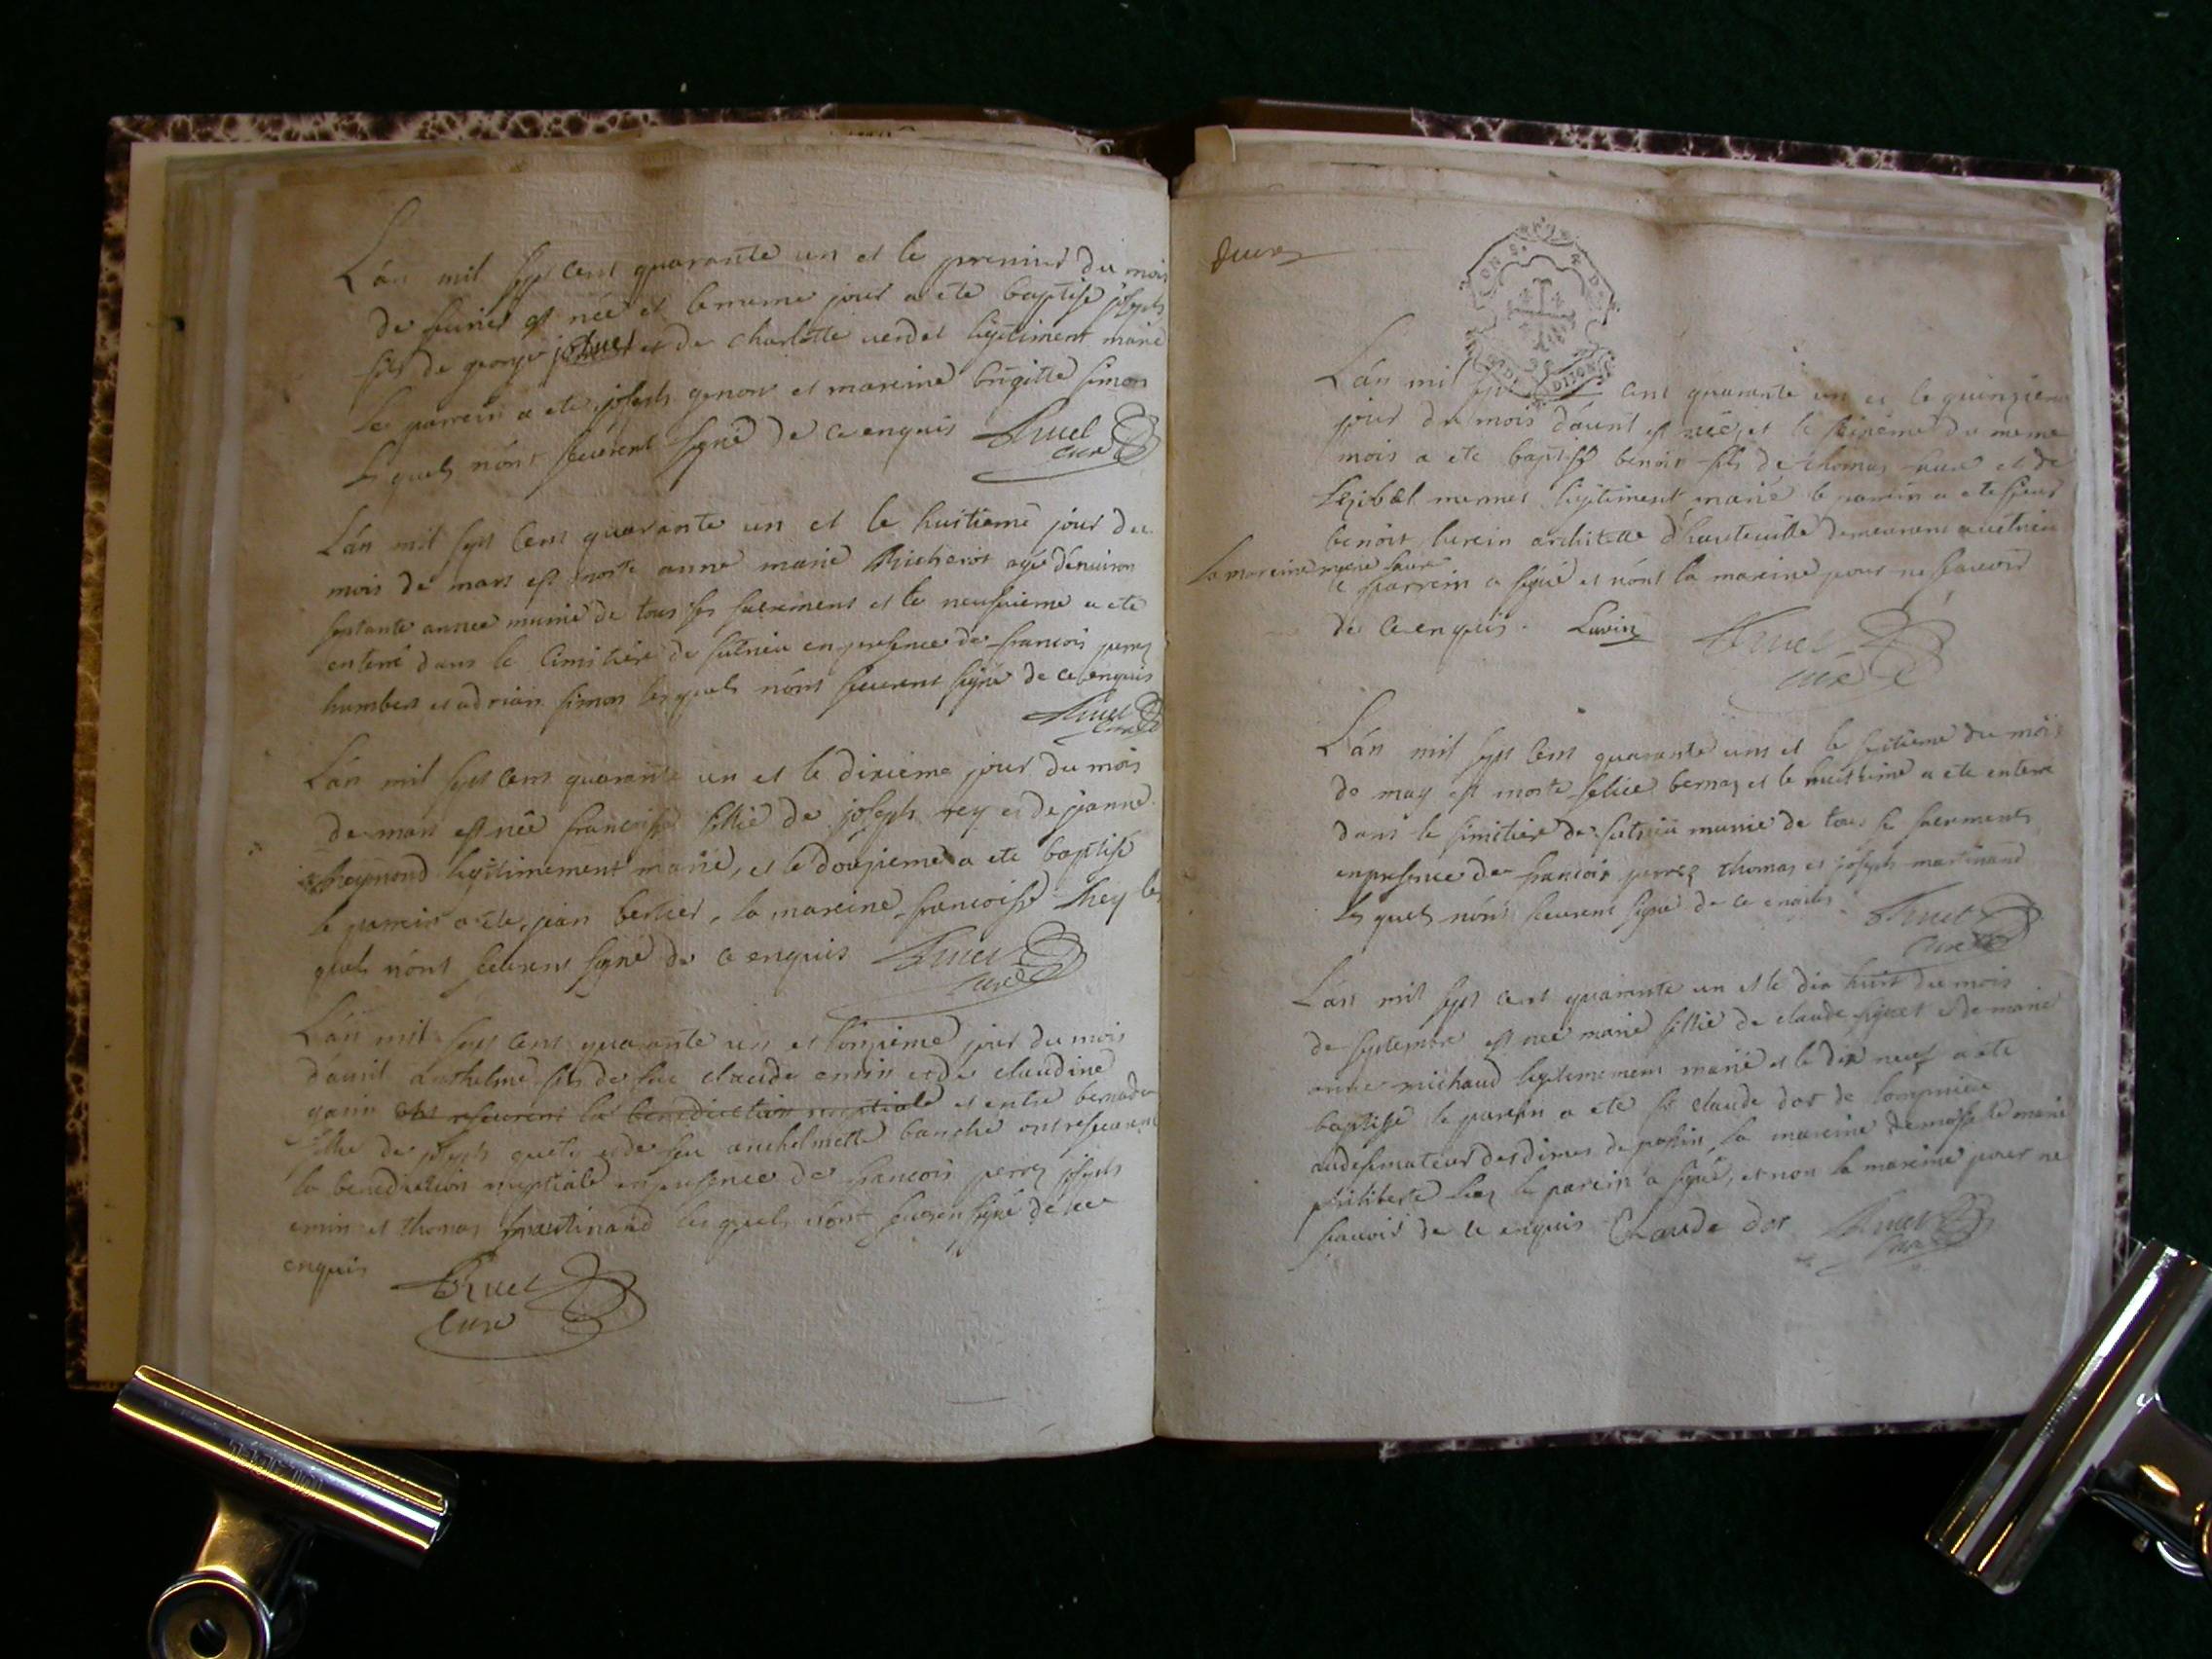 L'án mil sept cent quarante un et le premier du mois
de feurier est née et le meme jour a ete baptisé joseph
fils de george et de charlotte uerdet legitiment marié
Le parrein a ete joseph genou et mareine brigitte simon
les quels n'ónt seurent signé de ce enquis Ruet
curé
L'án mil sept cent quarante un et le huitieme jour du
mois de mars est morte anne marie Richerot agé d'enuiron
septante année munie de tous ses sacrement et le neufuieme a ete
enterré dans le cimitiere de sutrieu en presence de francois perret
humbert et adrian simon lesquels n'ónt seurent signé de ce enquis
Ruet
curé
L'án mil sept cent quarante un et le dixieme jour du mois
de mars est née francoisse fillie de joseph rey et de jeanne
Reymond legitimement marié, et le douzieme a ete baptisé
le parrein a ete jean bertier, la mareine francoisse Rey les
quels n'ónt seurent signé de ce enquis Ruet
curé
L'án mil sept cent quarante un et l'onzieme jour du mois
d'auril anthelme fils de feu claude emin et de claudine
gavin ont reseurent la benediction nuptiale et entre bernarde
fillie de joseph et de feu anthelmette banche ont reseurent
la benediction nuptiale en presence de francois perret joseph
emin et thomas martinand lesquels n'ónt seuren signé de ce
enquis
Ruet
curé
L'án mil sept cent quarante un et le quinzieme
jour du mois d'auril est née, et le seizieme du meme
mois a ete baptisé benoit fils de thomas et de
mermet legitiment marié le parrein a ete sieur
benoit architette d'hauteuille demeurent a
la mareine
le parrein a signé et n'ónt la mareine pour ne scauoir
de ce enquis. Ruet
curé
L'án mil sept cent quarante un et le septieme du mois
de may est morte felice bernaz et le huittieme a ete enterré
dans le simitiere de sutrieu munie de tous se sacrements
en presence de francois perret thomas et joseph martinand
les quels n'ónt seurent signé de ce Ruet
curé
L'án mil sept cent quarante un et le dix huit du mois
de septembre est née marie fillie de claude et de marie
anne michaud legitimement marié et le dix neuf a ete
baptisé le parrein a ete sr claude dor de lompnieu
des dimes de la mareine demoiselle marie
philiberte le parein a signé, et non la mareine pour ne
scauoir de ce enquis Claude dor Ruet
curé
DIJON